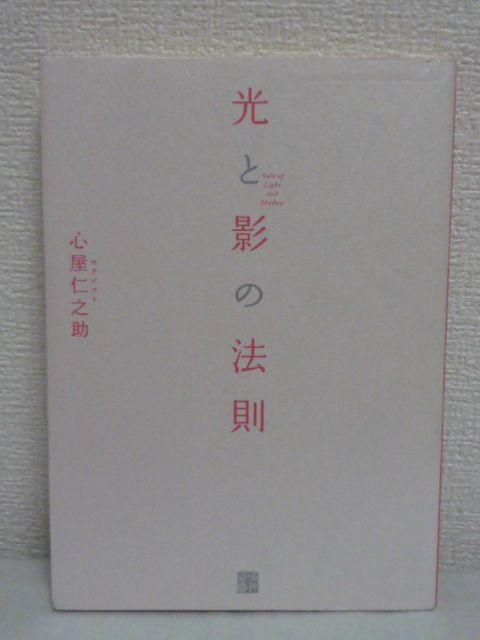 光と影の法則
Rule of
Light
and
Shadow
セラピスト
心屋仁之助